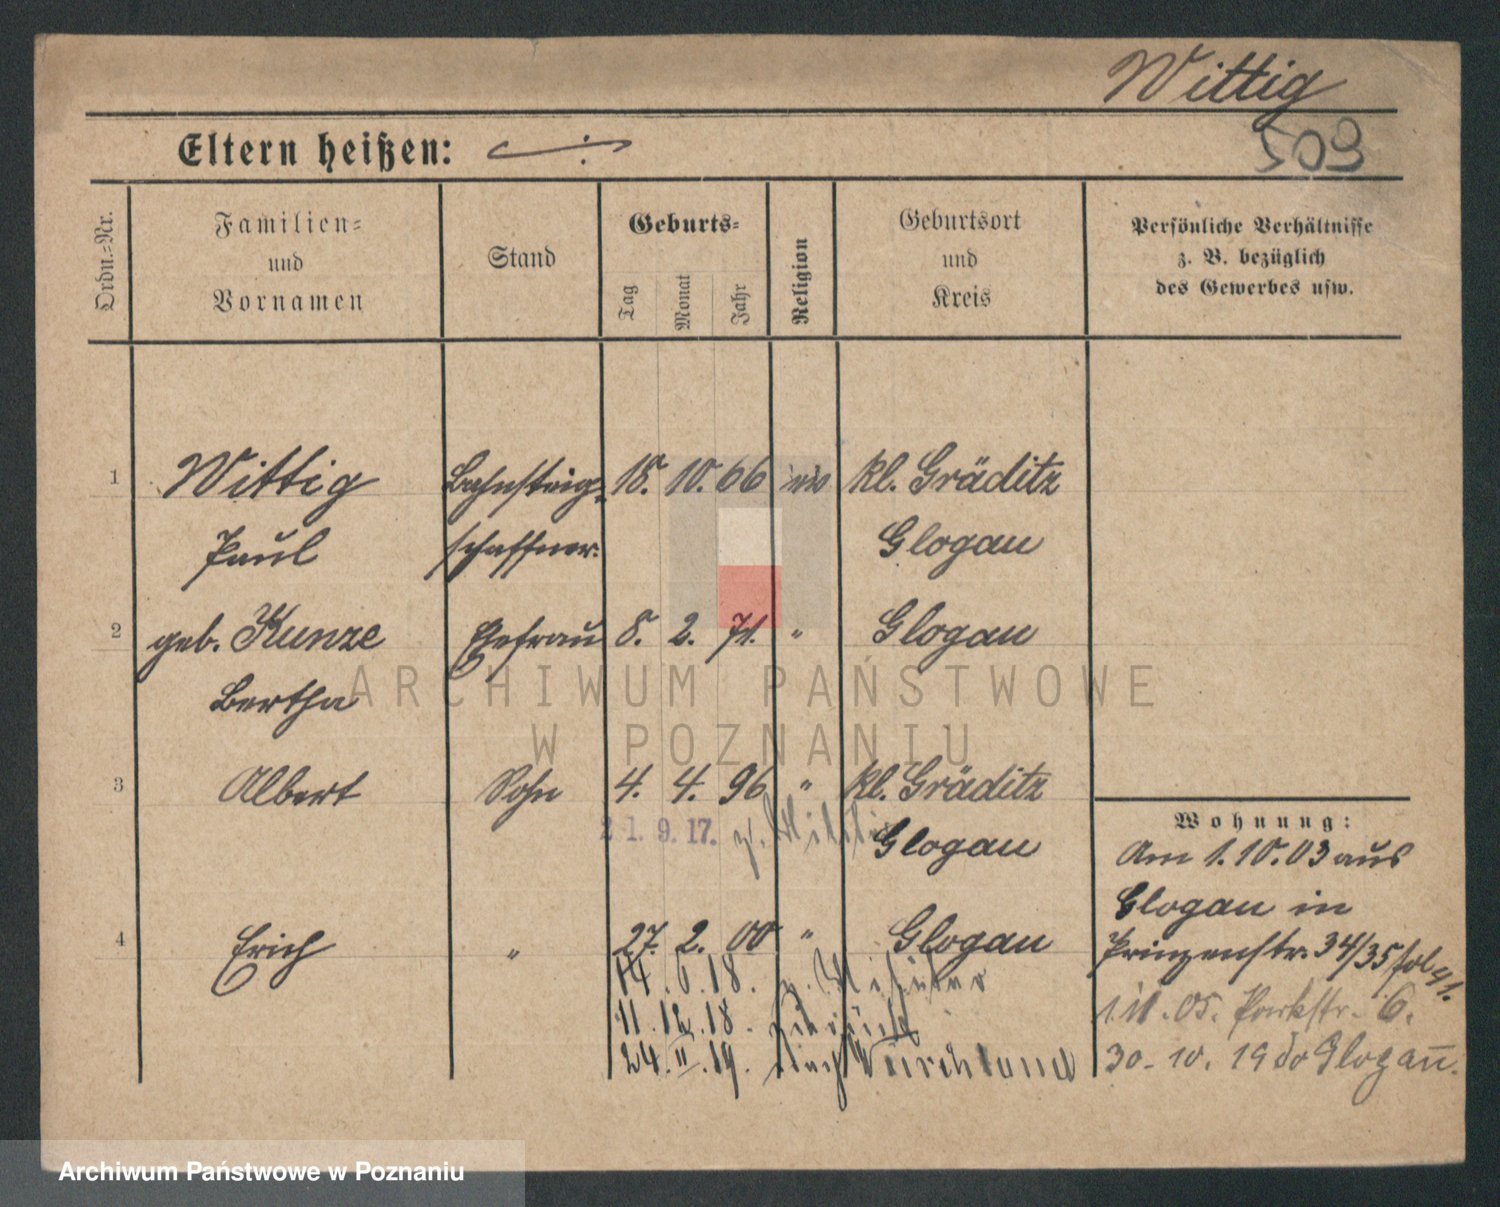 Wittig
509
Eltern heißen:
Ordn.=Nr.
Familien=
und
Vornamen
Stand
Geburts=
Tag
Monat
Jahr
Religion
Geburtsort
und
Kreis
Persönliche Verhältnisse
z. B. bezüglich
des Gewerbes usw.
1 Wittig Bahnsteig= 18. 10. 66 kl. Gräditz
Paul schaffner. Glogau
2 geb. Kunze Ehefrau 8. 2. 71. " Glogau
Bertha
3 Albert Sohn 4. 4. 96 " kl. Gräditz
21.9.17. z. Militär Glogau
4 Erich " 27. 2. 00 " Glogau
14. 6. 18. z. Militär
11. 12. 18. zurück
24. II. 19. nach
Wohnung:
Am 1.10.03 aus
Glogau in
Prinzenstr. 34/35
1.11.05. Parkstr. 6.
30. 10. 19 Glogau.
ARCHIWUM PAŃSTWOWE
W POZNANIU
Archiwum Państwowe w Poznaniu